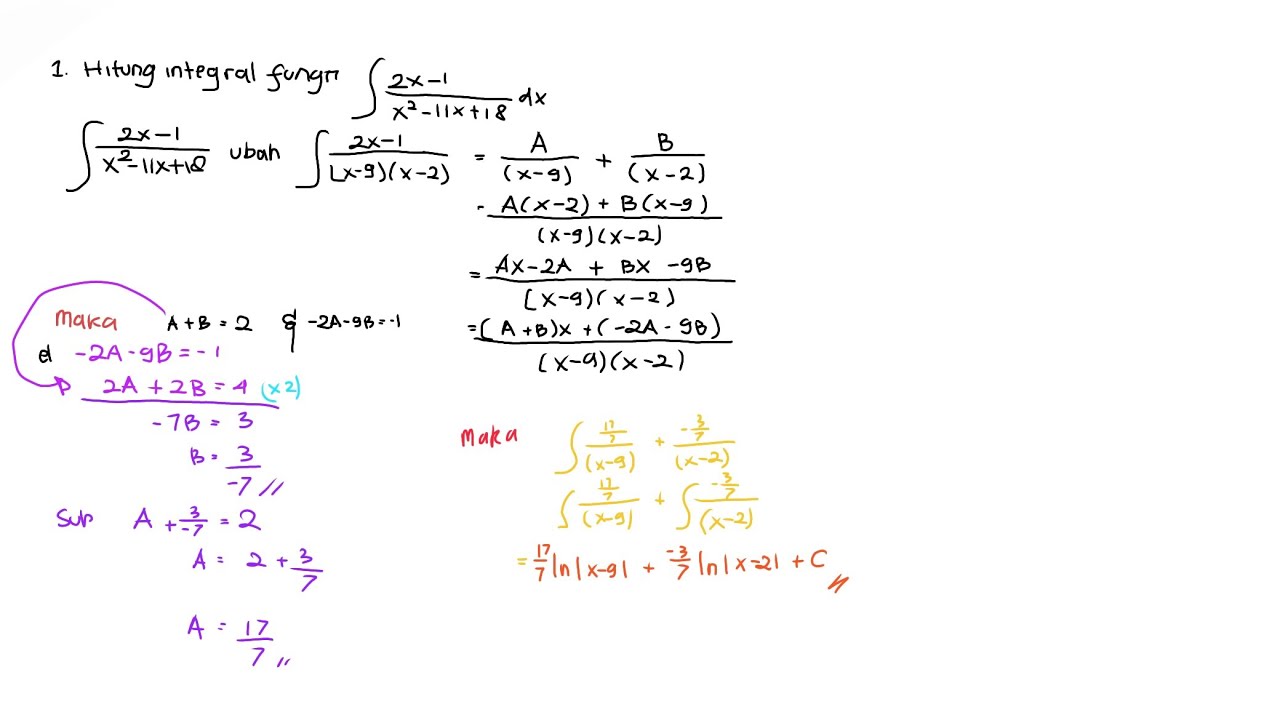 1. Hitung integral fungsi ∫ (2x-1)/(x²-11x+18) dx
∫ (2x-1)/(x²-11x+18) ubah ∫ (2x-1)/((x-9)(x-2)) = A/(x-9) + B/(x-2)
= (A(x-2) + B(x-9))/((x-9)(x-2))
= (Ax-2A + Bx-9B)/((x-9)(x-2))
= ((A+B)x + (-2A-9B))/((x-9)(x-2))
Maka A+B=2 & -2A-9B=-1
el -2A-9B=-1
2A+2B=4 (x2)
-7B = 3
B = 3/-7 //
Sub A + 3/-7 = 2
A = 2 + 3/7
A = 17/7 //
Maka ∫ (17/7)/(x-9) + (-3/7)/(x-2)
∫ (17/7)/(x-9) + ∫ (-3/7)/(x-2)
= 17/7 ln|x-9| + -3/7 ln|x-2| + C //